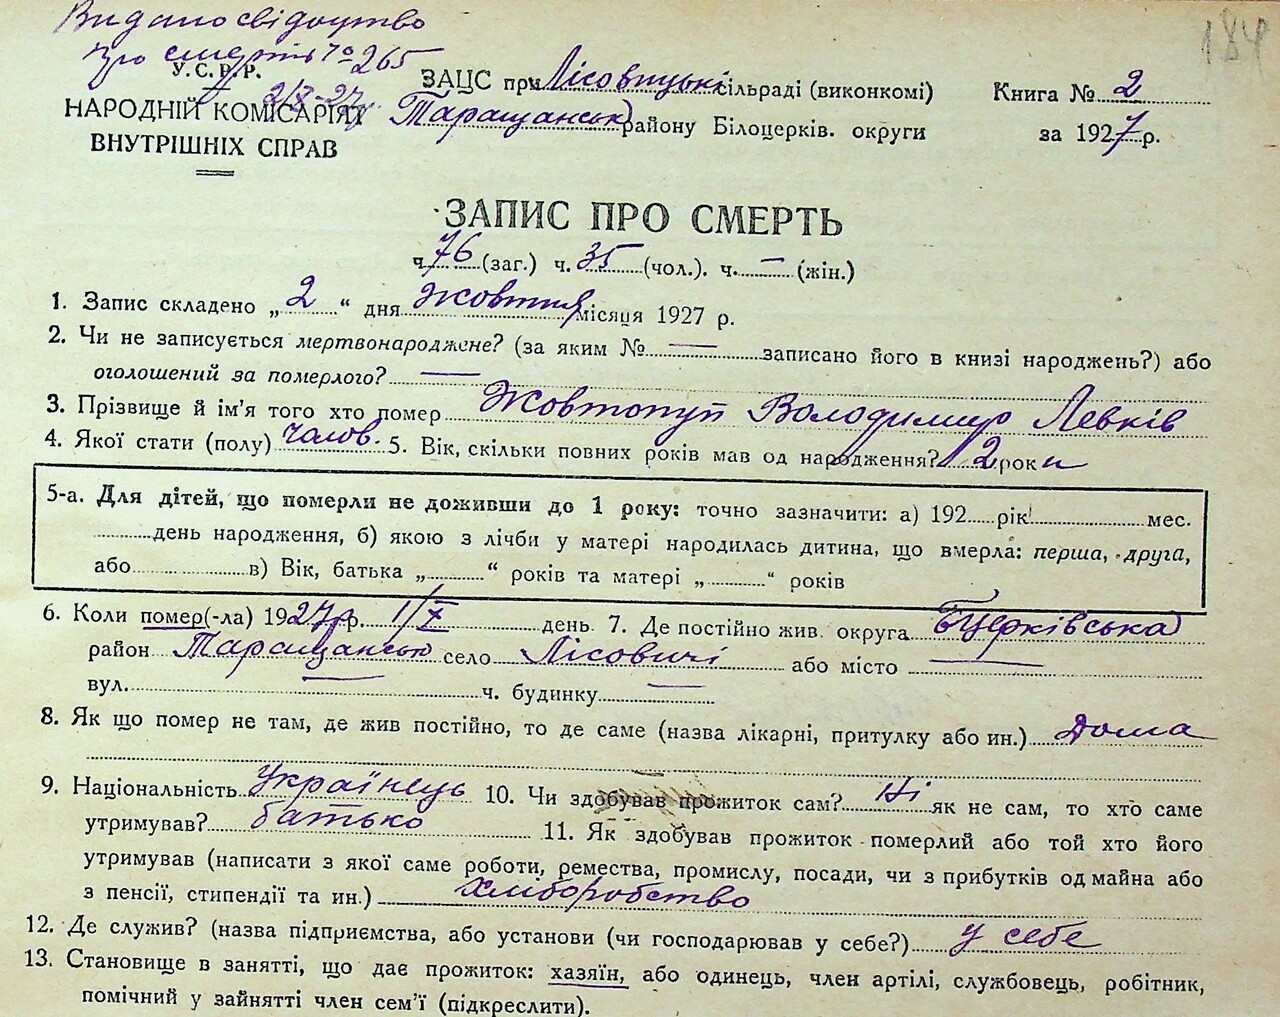 Видано свідоцтво
про смерть № 265
2/X-27р.
184
У.С.Р.Р.
НАРОДНІЙ КОМІСАРІЯТ
ВНУТРІШНІХ СПРАВ
ЗАЦС при Лісовицькі сільраді (виконкомі)
Таращанськ району Білоцерків. округи
Книга № 2
за 1927 р.
ЗАПИС ПРО СМЕРТЬ
ч. 76 (заг.) ч. 35 (чол.). ч. — (жін.)
1. Запис складено „ 2 “ дня жовтня місяця 1927 р.
2. Чи не записується мертвонароджене? (за яким № — записано його в книзі народжень?) або
оголошений за померлого? —
3. Прізвище й ім'я того хто помер Жовтопуп Володимир Левків
4. Якої стати (полу) чолов. 5. Вік, скільки повних років мав од народження? 2 роки
5-а. Для дітей, що померли не доживши до 1 року: точно зазначити: а) 192 рік мес.
день народження, б) якою з лічби у матері народилась дитина, що вмерла: перша, друга,
або в) Вік, батька „ “ років та матері „ “ років
6. Коли помер(-ла) 1927р. 1/X день 7. Де постійно жив. округа БЦерківська
район Таращанськ село Лісовичі або місто —
вул. — ч. будинку —
8. Як що помер не там, де жив постійно, то де саме (назва лікарні, притулку або ин.) Дома
9. Національність Українець 10. Чи здобував прожиток сам? Ні як не сам, то хто саме
утримував? батько 11. Як здобував прожиток померлий або той хто його
утримував (написати з якої саме роботи, ремества, промислу, посади, чи з прибутків од майна або
з пенсії, стипендії та ин.) хліборобство
12. Де служив? (назва підприємства, або установи (чи господарював у себе?) у себе
13. Становище в занятті, що дає прожиток: хазяїн, або одинець, член артілі, службовець, робітник,
помічний у зайнятті член сем'ї (підкреслити).